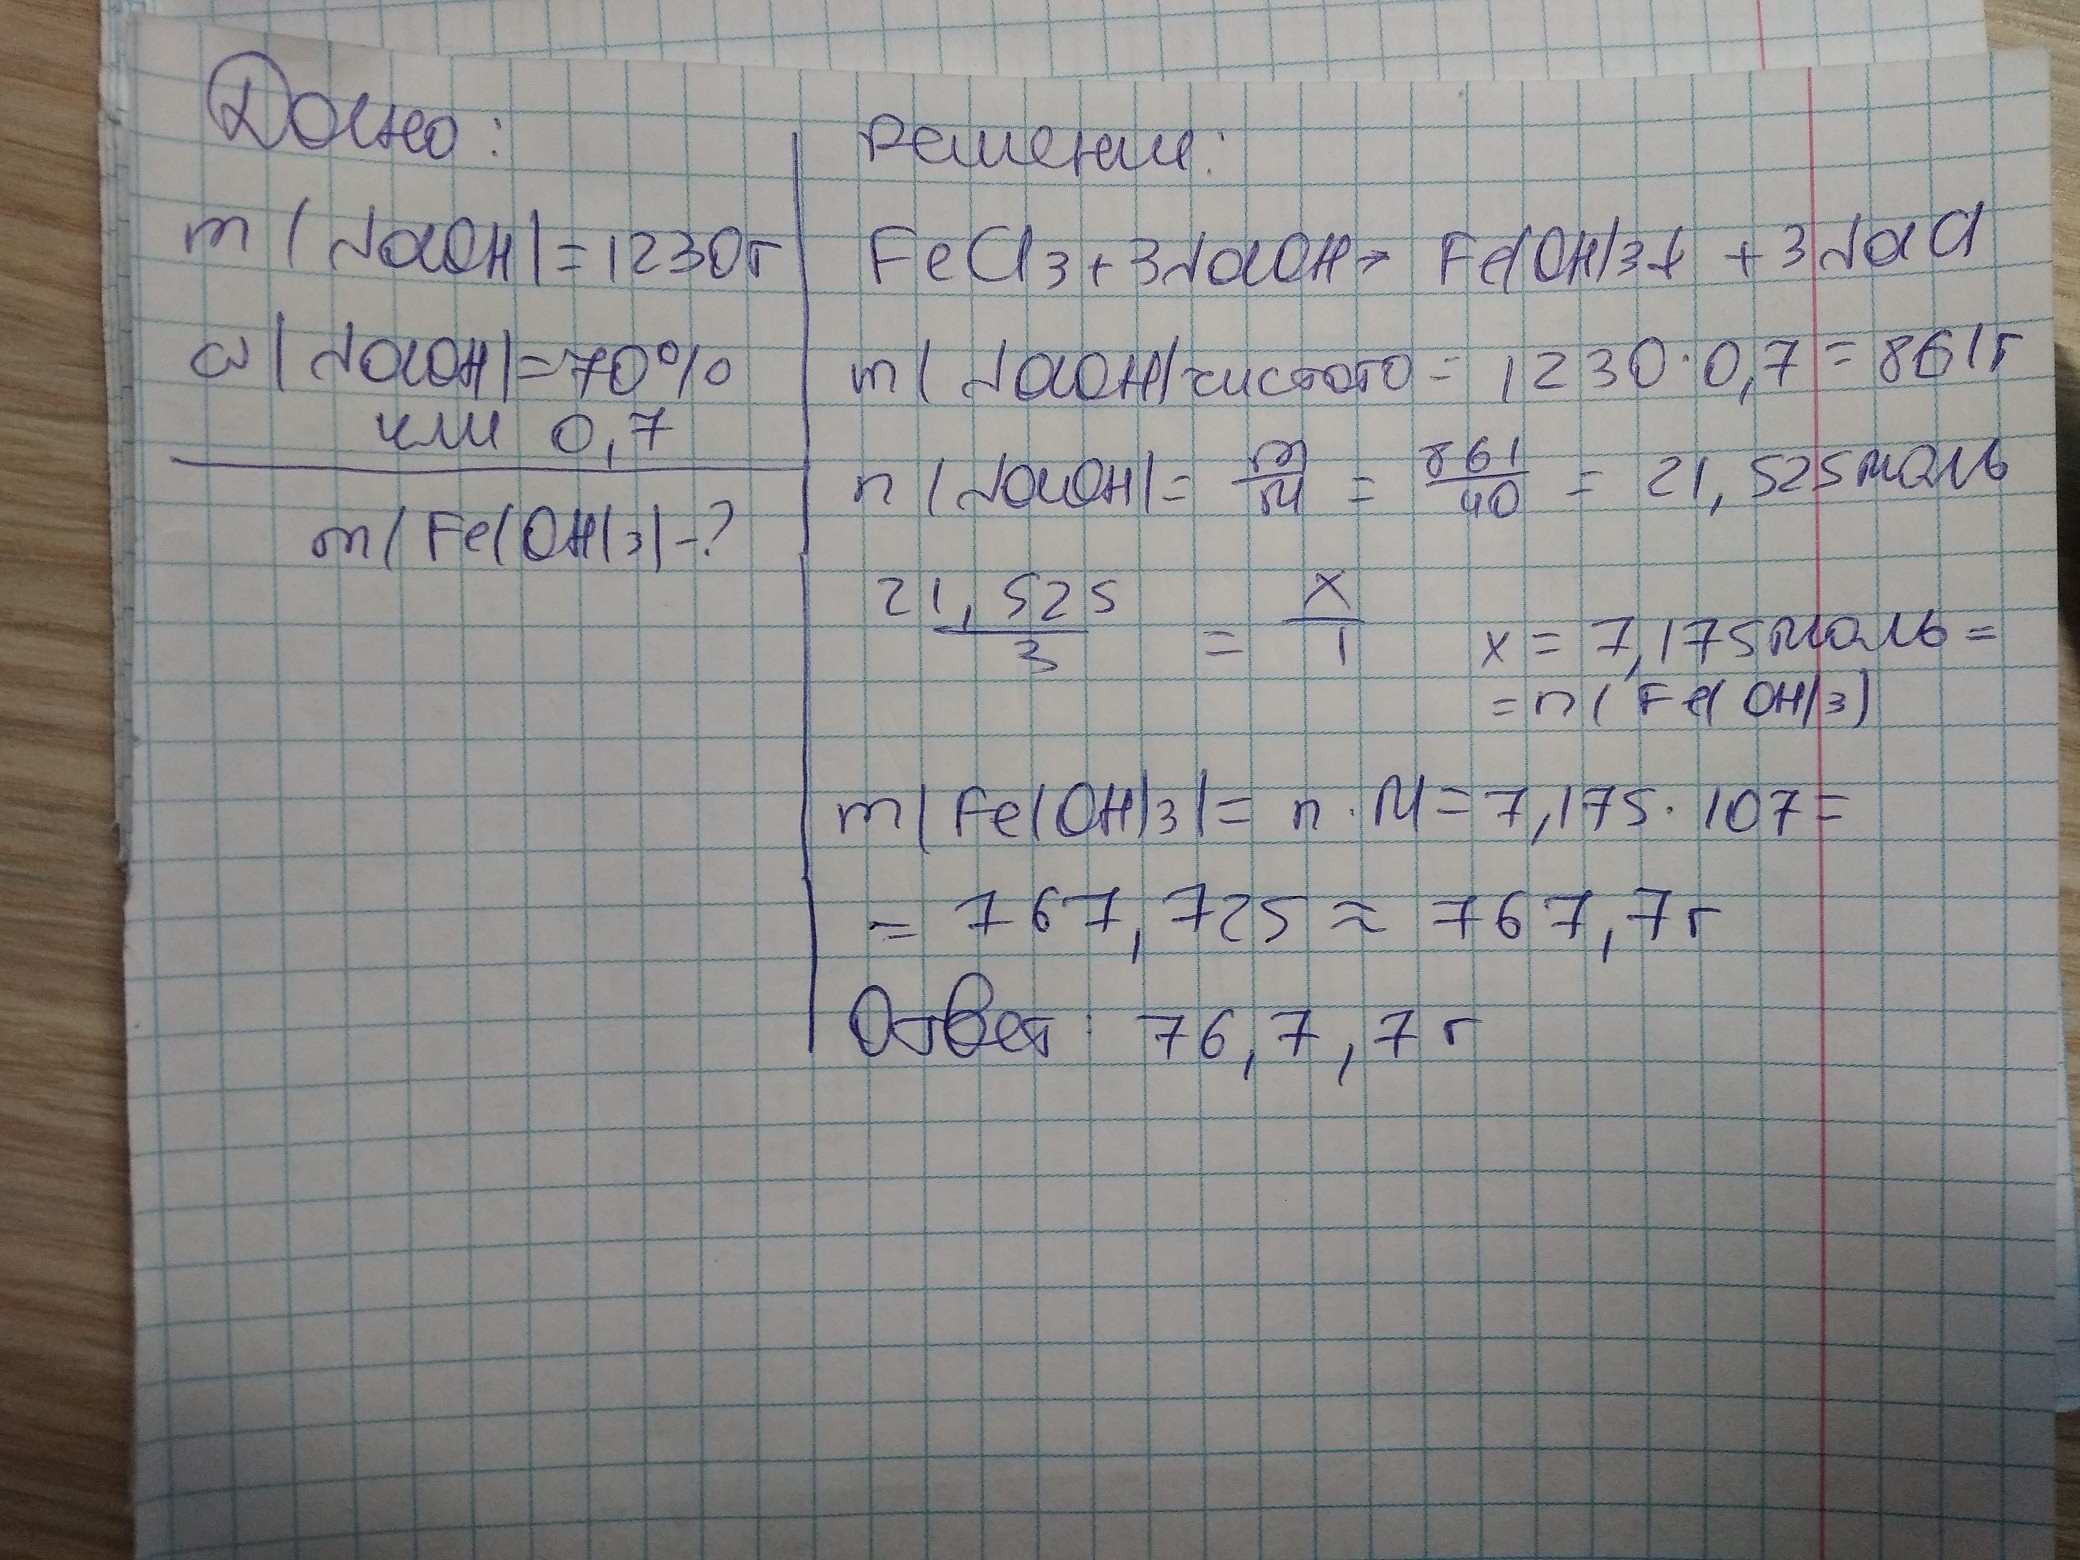 Дано:
m(NaOH)=1230г
ω(NaOH)=70%
или 0,7
m(Fe(OH)3)-?
Решение:
FeCl3+3NaOH→ Fe(OH)3↓ +3NaCl
m(NaOH)чистого = 1230·0,7=861г
n(NaOH)= m/M = 861/40 = 21,525моль
21,525/3 = x/1 x = 7,175моль=
=n(Fe(OH)3)
m(Fe(OH)3)= n·M=7,175·107=
= 767,725≈767,7г
Ответ: 76,7,7г